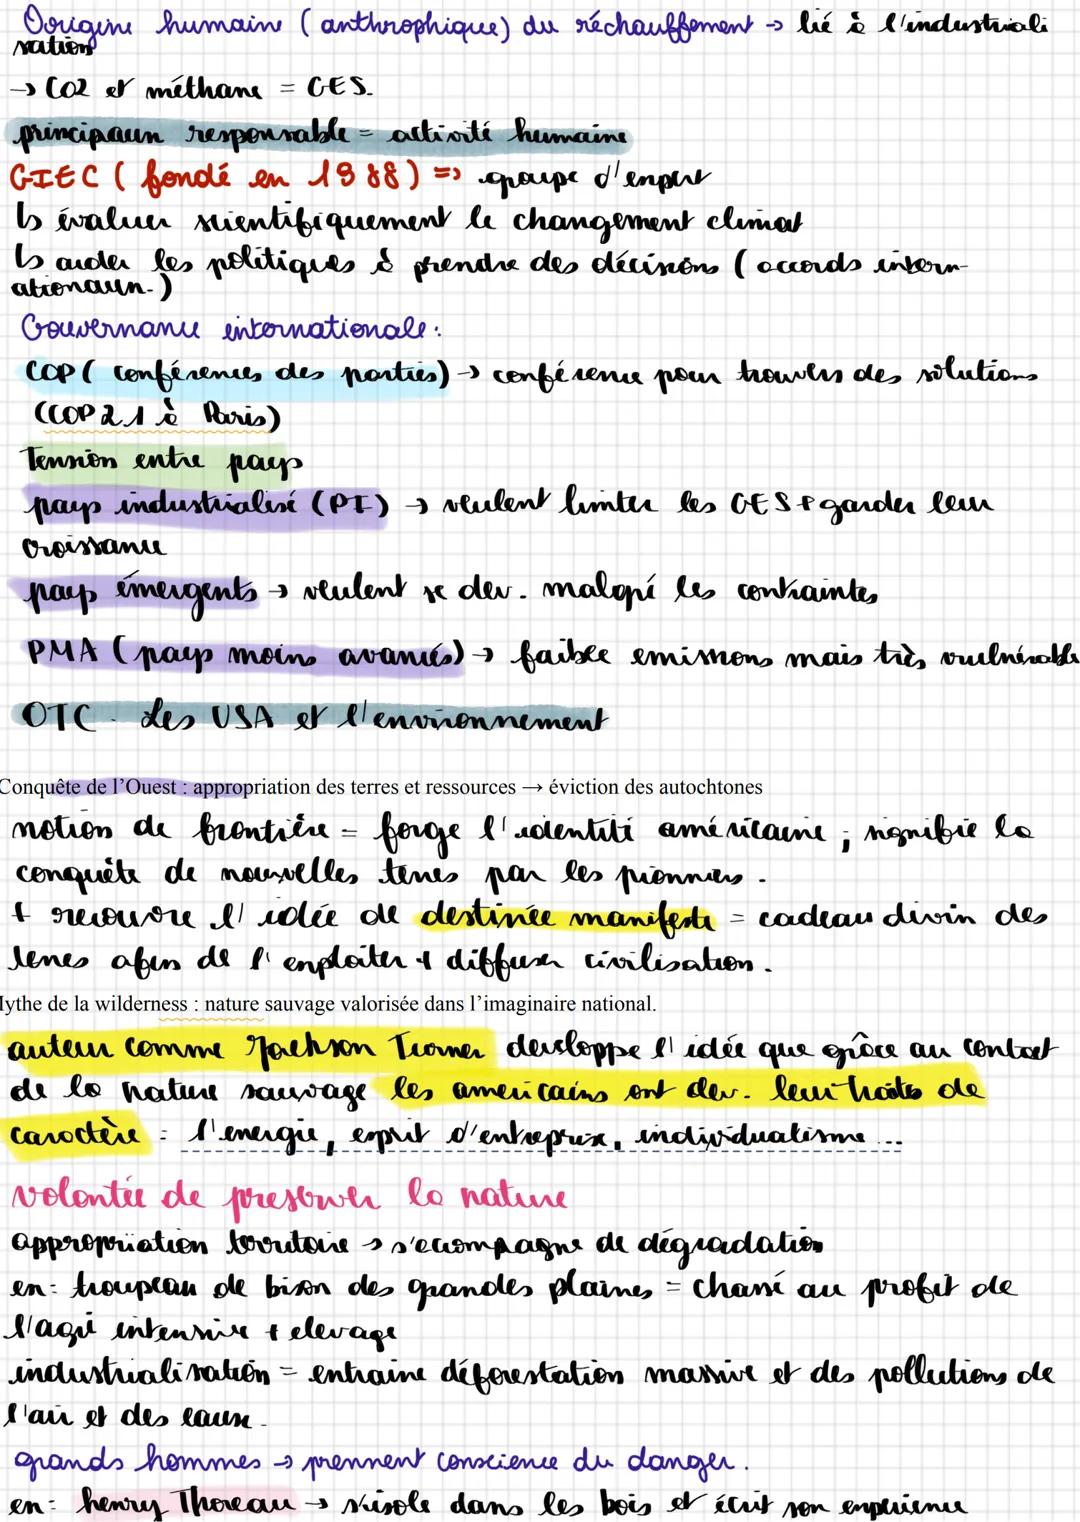 Oorigine humaine (anthrophique) du réchauffement → lié à l'industriali
sation
→ CO2 et méthane = GES.
principaux responsable = activité humaine
GIEC (fondé en 1988) => groupe d'expert
↳ évaluer scientifiquement le changement climat
↳ aider les politiques à prendre des décisions (accords intern-
ationaux.)
Gouvernance internationale :
COP (conférences des parties) → conférence pour trouvers des solutions
(COP21 à Paris)
Tension entre pays
pays industrialisé (PI) → veulent limiter les GES + garder leur
croissance
pays émergents → veulent se dev. malgré les contraintes
PMA (pays moins avancés) → faible emissions mais très vulnérable
OTC. Les USA et l'environnement
Conquête de l'Ouest : appropriation des terres et ressources → éviction des autochtones
notion de frontière = forge l'identité américaine ; signifie la
conquête de nouvelles terres par les pionniers.
+ recouvre l'idée de destinée manifeste = cadeau divin des
terres afin de l'exploiter + diffuser civilisation.
Mythe de la wilderness : nature sauvage valorisée dans l'imaginaire national.
auteur comme Jackson Turner developpe l'idée que grâce au contact
de la nature sauvage les américains ont dev. leur traits de
caractère : l'energie, esprit d'entreprise, individualisme ...
volontée de preserver la nature
appropriation territoire → s'accompagne de dégradation
ex: troupeau de bison des grandes plaines = chassé au profit de
l'agri intensive + elevage
industrialisation = entraine déforestation massive et des pollutions de
l'air et des eaux.
grands hommes → prennent conscience du danger.
ex: henry Thoreau → s'isole dans les bois et écrit son expérience